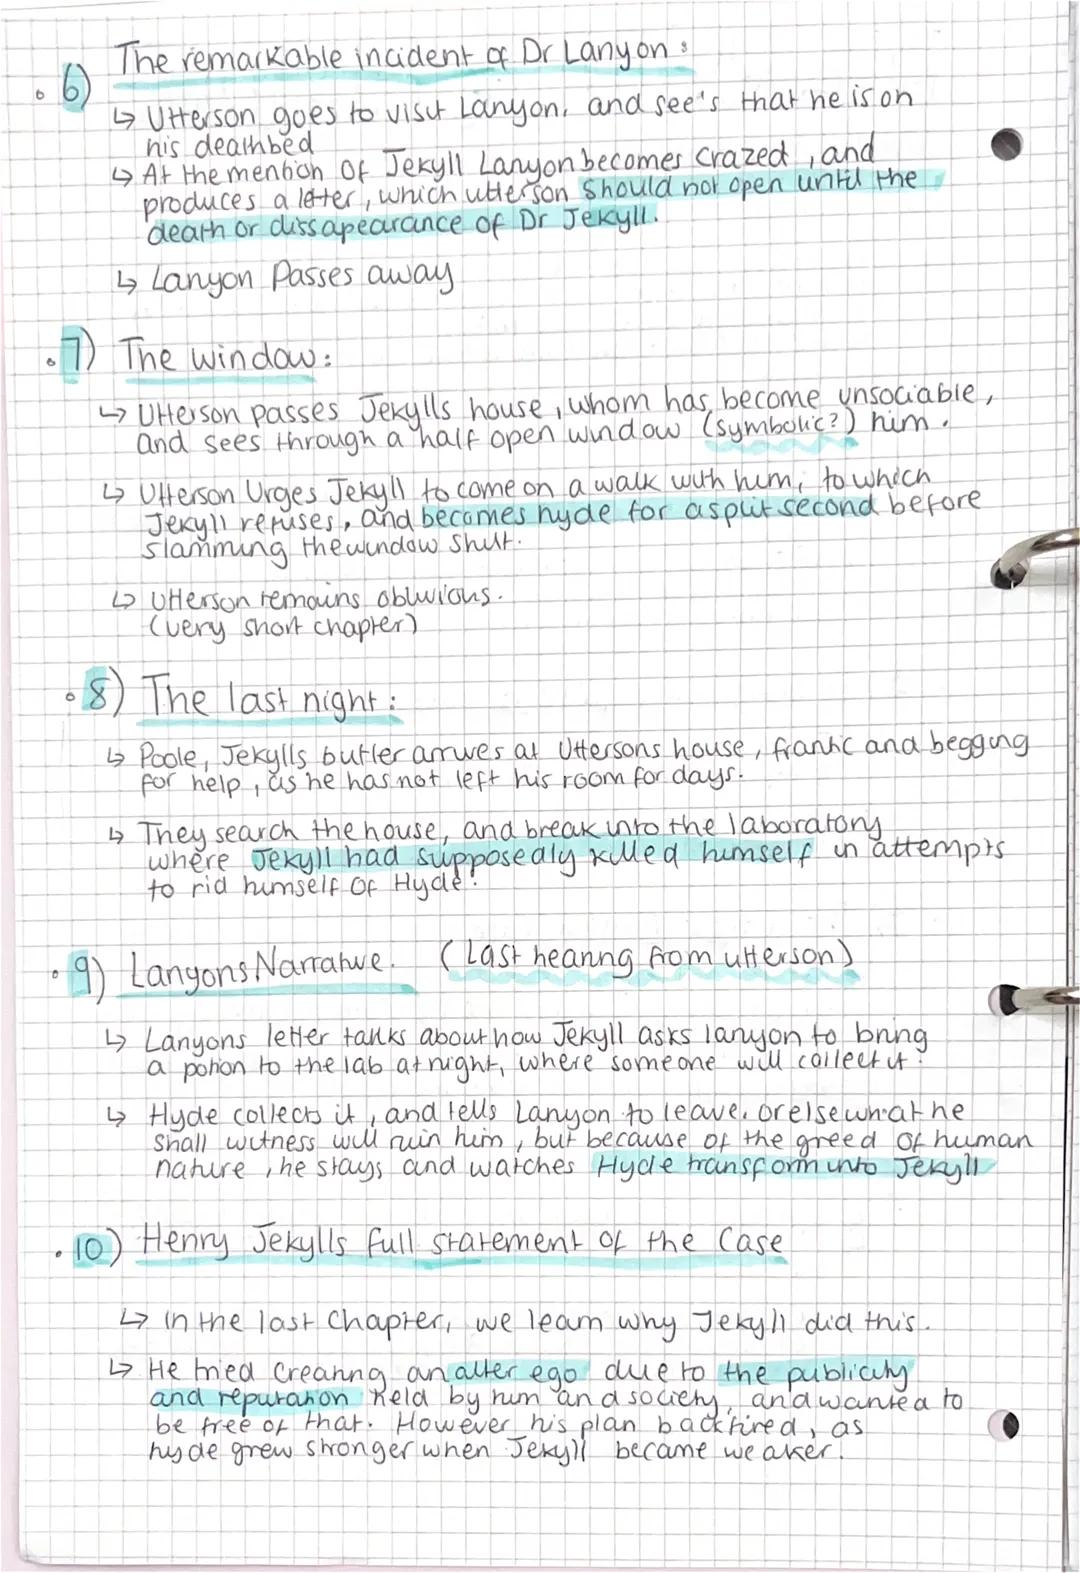 6) The remarkable incident of Dr Lanyon:
↳ Utterson goes to visit Lanyon, and see's that he is on
his deathbed
↳ At the mention of Jekyll Lanyon becomes crazed, and
produces a letter, which utterson should not open until the
death or dissapearance of Dr Jekyll.
↳ Lanyon Passes away
7) The window:
↳ Utterson passes Jekylls house, whom has become unsociable,
and sees through a half open window (symbolic?) him.
↳ Utterson Urges Jekyll to come on a walk with him, to which
Jekyll refuses, and becomes hyde for a split second before
slamming the window shut.
↳ Utterson remains oblivious.
(very short chapter)
8) The last night:
↳ Poole, Jekylls butler arrives at Uttersons house, frantic and begging
for help, as he has not left his room for days.
↳ They search the house, and break into the laboratory
where Jekyll had supposedly killed himself in attempts
to rid himself of Hyde.
9) Lanyons Narrative. (Last hearing from utterson)
↳ Lanyons letter talks about how Jekyll asks lanyon to bring
a potion to the lab at night, where someone will collect it.
↳ Hyde collects it, and tells Lanyon to leave, or else what he
shall witness will ruin him, but because of the greed of human
nature, he stays and watches Hyde transform into Jekyll
10) Henry Jekylls full statement of the Case
↳ In the last Chapter, we learn why Jekyll did this.
↳ He tried creating an alter ego due to the publicity
and reputation held by him and society, and wanted to
be free of that. However his plan backfired, as
hyde grew stronger when Jekyll became weaker.